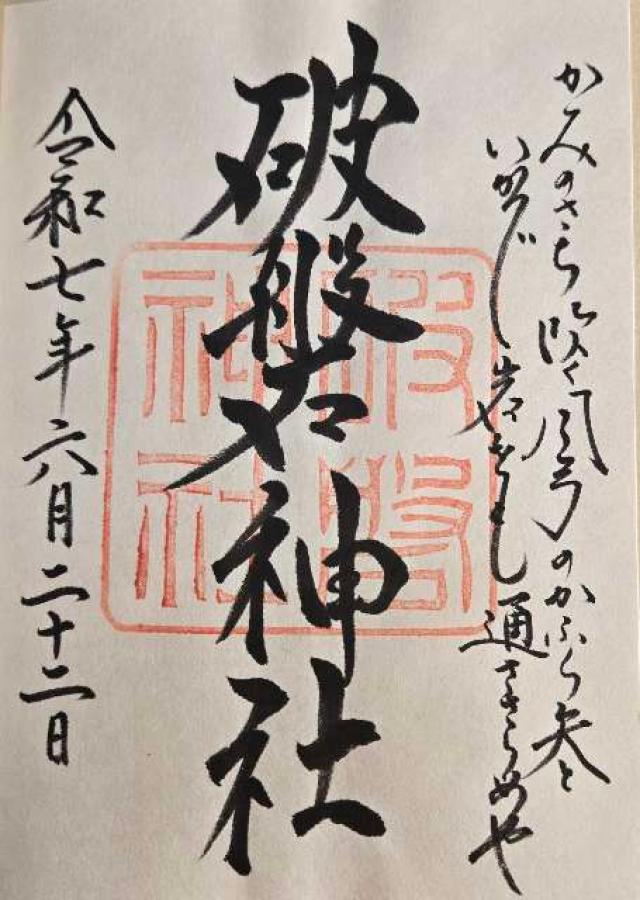 かみのさち吹く風弓のかふら矢と
いかづし岩をもし通さゝらめや
破磐神社
令和七年六月二十二日
破磐神社